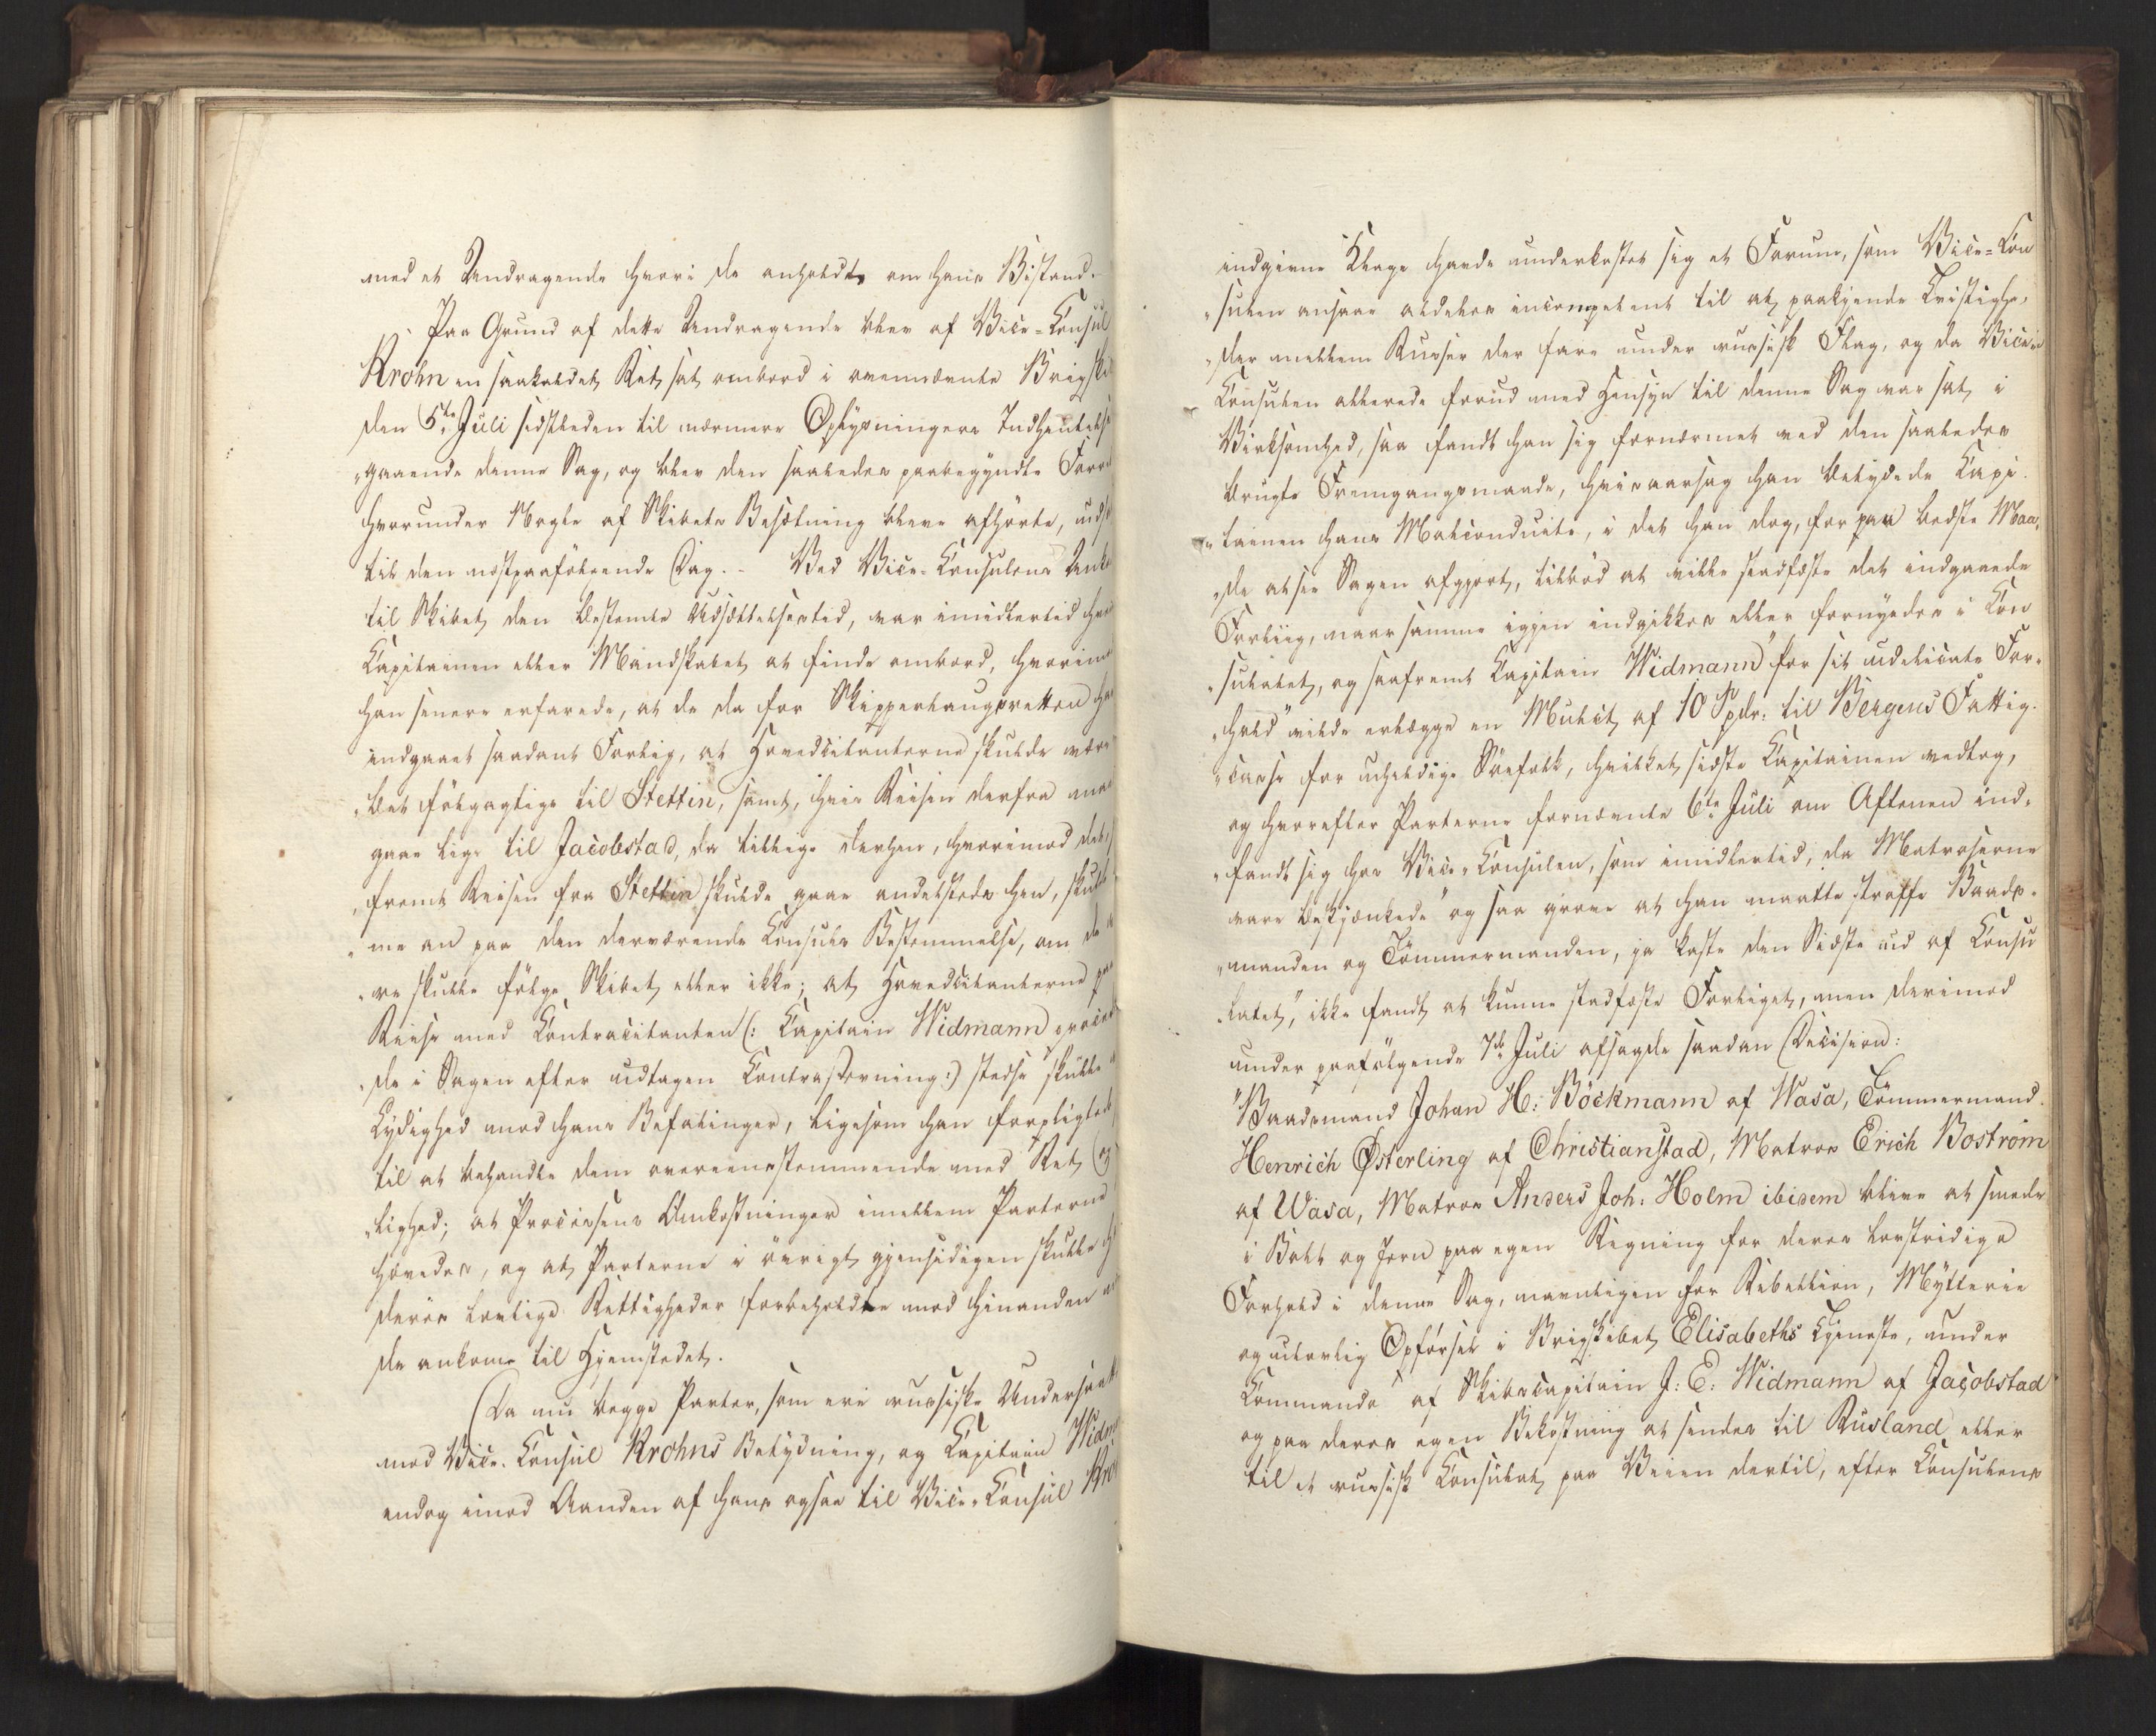 med et Andragende hvori de anholdt om hans Bistand.
Paa Grund af dette Andragende blev af Vice-Consul
Krohn en saakaldet Ret sat ombord i ovennævnte Brigski
den 5te Juli sidstleden til nærmere Oplysningers Indhentelse
„gaaende denne Sag, og blev den saaledes paabegyndte Forre
hvorunder Nogle af Skibets Besætning bleve afhørte, udsa
til den næstpaafølgende Dag. - Ved Vice-Consulens Anko
til Skibet den bestemte Udsættelsestid, var imidlertid hve
Capitainen eller Mandskabet at finde ombord, hvorimo
han senere erfarede, at de da for Skipperlaugsretten ha
indgaaet saadant Forlig, at Hovedcitanterne skulde være
„bet følgagtige til Stettin, samt, hvis Reisen derfra maa
gaae lige til Jacobstad, da tillige derhen, hvorimod det,
„fremt Reisen fra Stettin skulde gaae andetsteds hen, skuld
„me an paa den derværende Consuls Bestemmelse, om de
„re skulle følge Skibet eller ikke; at Hovedcitanterne paa
Reise med Contracitanten (: Capitain Widmann proced
„de i Sagen efter udtagen Contrastevning:) stedse skulde
Lydighed mod hans Befalinger, ligesom han forpligted
til at behandle dem overeensstemmende med Ret og
„lighed; at Processens Omkostninger imellem Parterne
hævedes, og at Parterne i øvrigt gjensidigen skulle h
deres lovlige Rettigheder forbeholdte mod hinanden
de ankom til Hjemstedet.
Da nu begge Parter, som ere russiske Undersaat
mod Vice-Consul Krohns Betydning, og Capitain Widm
endog imod Aanden af hans ogsaa til Vice-Consul Kro
indgivne Klage havde underkastet sig et Forum, som Vice-Con
„sulen ansaae aldeles incompetent til at paakjende Tvistighe,
„der mellem Russer der fare under russisk Flag, og da Vice-
Consulen allerede forud med Hensyn til denne Sag var sat i
Virksomhed, saa fandt han sig fornærmet ved den saaledes
brugte Fremgangsmaade, hvisaarsag han betydede Capi-
„tainen hans Malconduite, i det han dog, for paa bedste Maa,
„de at see Sagen afgjort, tilbød at ville stadfæste det indgaaede
Forliig, naar samme igjen indgikkes eller fornyedes i Con
„sulatet, og saafremt Capitain Widmann "for sit udelicate For-
„hold" vilde erlægge en Mulct af 10 Spdr. til Bergens Fattig-
„casse for uheldige Søefolk, hvilket sidste Capitainen vedtog,
og hvorefter Parterne fornævnte 6te Juli om Aftenen ind-
„fandt sig hos Vice-Consulen, som imidlertid, da Matroserne
vare beskjænkede "og saa grove at han maatte straffe Baads-
„manden og Tømmermanden, ja kaste den Sidste ud af Consu
„latet", ikke fandt at kunne stadfæste Forliget, men derimod
under paafølgende 7de Juli afsagde saadan Decision:
"Baadsmand Johan H: Böckmann af Wasa, Tømmermand
Henrich Østerling af Christianstad, Matros Erich Boström
af Wasa, Matros Anders Joh: Holm ibidem blive at smede
i Bolt og Jern paa egen Regning for deres lovstridige
Forhold i denne Sag, navnligen for Rebellion, Mytterie
og ulovlig Opførsel i Brigskibet Elisabeths Tjeneste, under
Commando af Skibscapitain J: E: Widmann af Jacobstad
og paa deres egen Bekostning at sendes til Rusland eller
til et russisk Consulat paa Veien dertil, efter Consulens